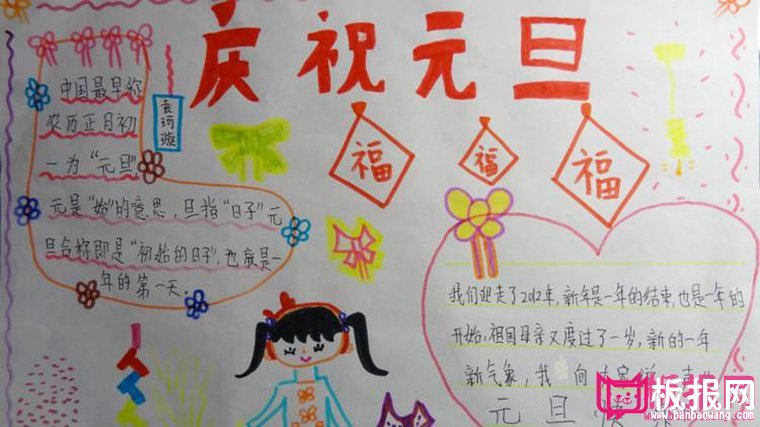 庆祝元旦
中国最早称
农历正月初
一为“元旦”
袁珂璇
元是“始”的意思，旦指“日子”元
旦合称即是“初始的日子”，也就是一
年的第一天。
福
福
福
我们迎走了2012年，新年是一年的结束，也是一年的
开始，祖国母亲又度过了一岁，新的一年
新气象，我 向
元旦快
板报网
www.banbaowang.com